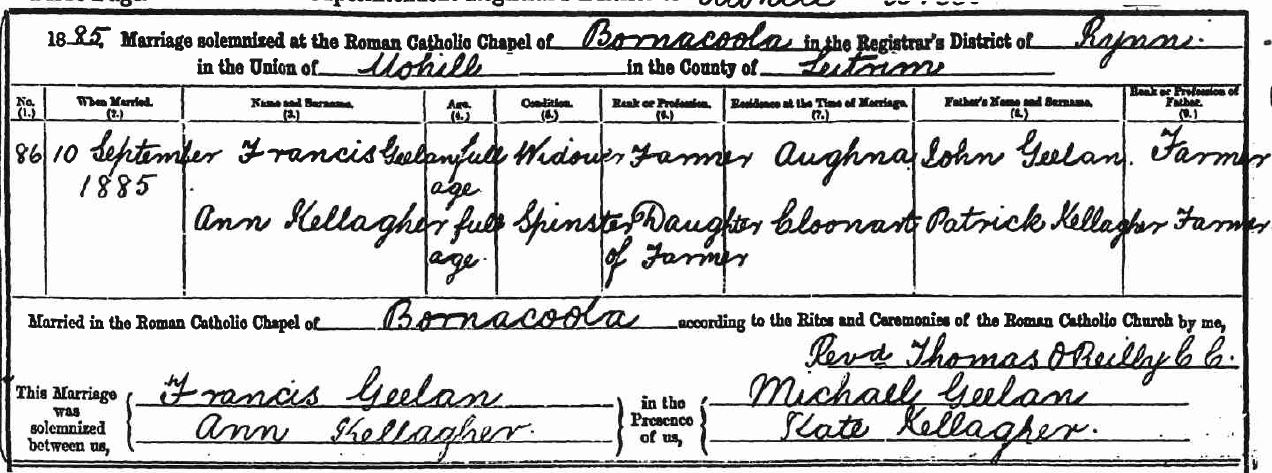 1885. Marriage solemnized at the Roman Catholic Chapel of Bornacoola in the Registrar's District of Rynn.
in the Union of Mohill in the County of Leitrim
No. When Married. Name and Surname. Age. Condition. Rank or Profession. Residence at the Time of Marriage. Father's Name and Surname. Rank or Profession of Father.
(1.) (2.) (3.) (4.) (5.) (6.) (7.) (8.) (9.)
86 10 September Francis Geelan full Widower Farmer Aughna John Geelan. Farmer
1885 age
Ann Kellagher full Spinster Daughter Cloonart Patrick Kellagher Farmer
age. of Farmer
Married in the Roman Catholic Chapel of Bornacoola according to the Rites and Ceremonies of the Roman Catholic Church by me,
Revd Thomas O'Reilly C C.
This Marriage was solemnized between us, Francis Geelan in the Presence of us, Michael Geelan
Ann Kellagher. Kate Kellagher.